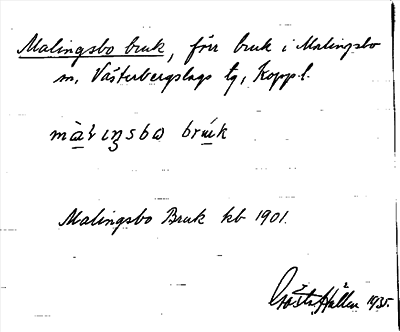 Malingsbo bruk, förr bruk i Malingsbo
sn, Västerbergslags tg, Koppl.
Malingsbo Bruk kb 1901.
Gösta Hallén 1935.